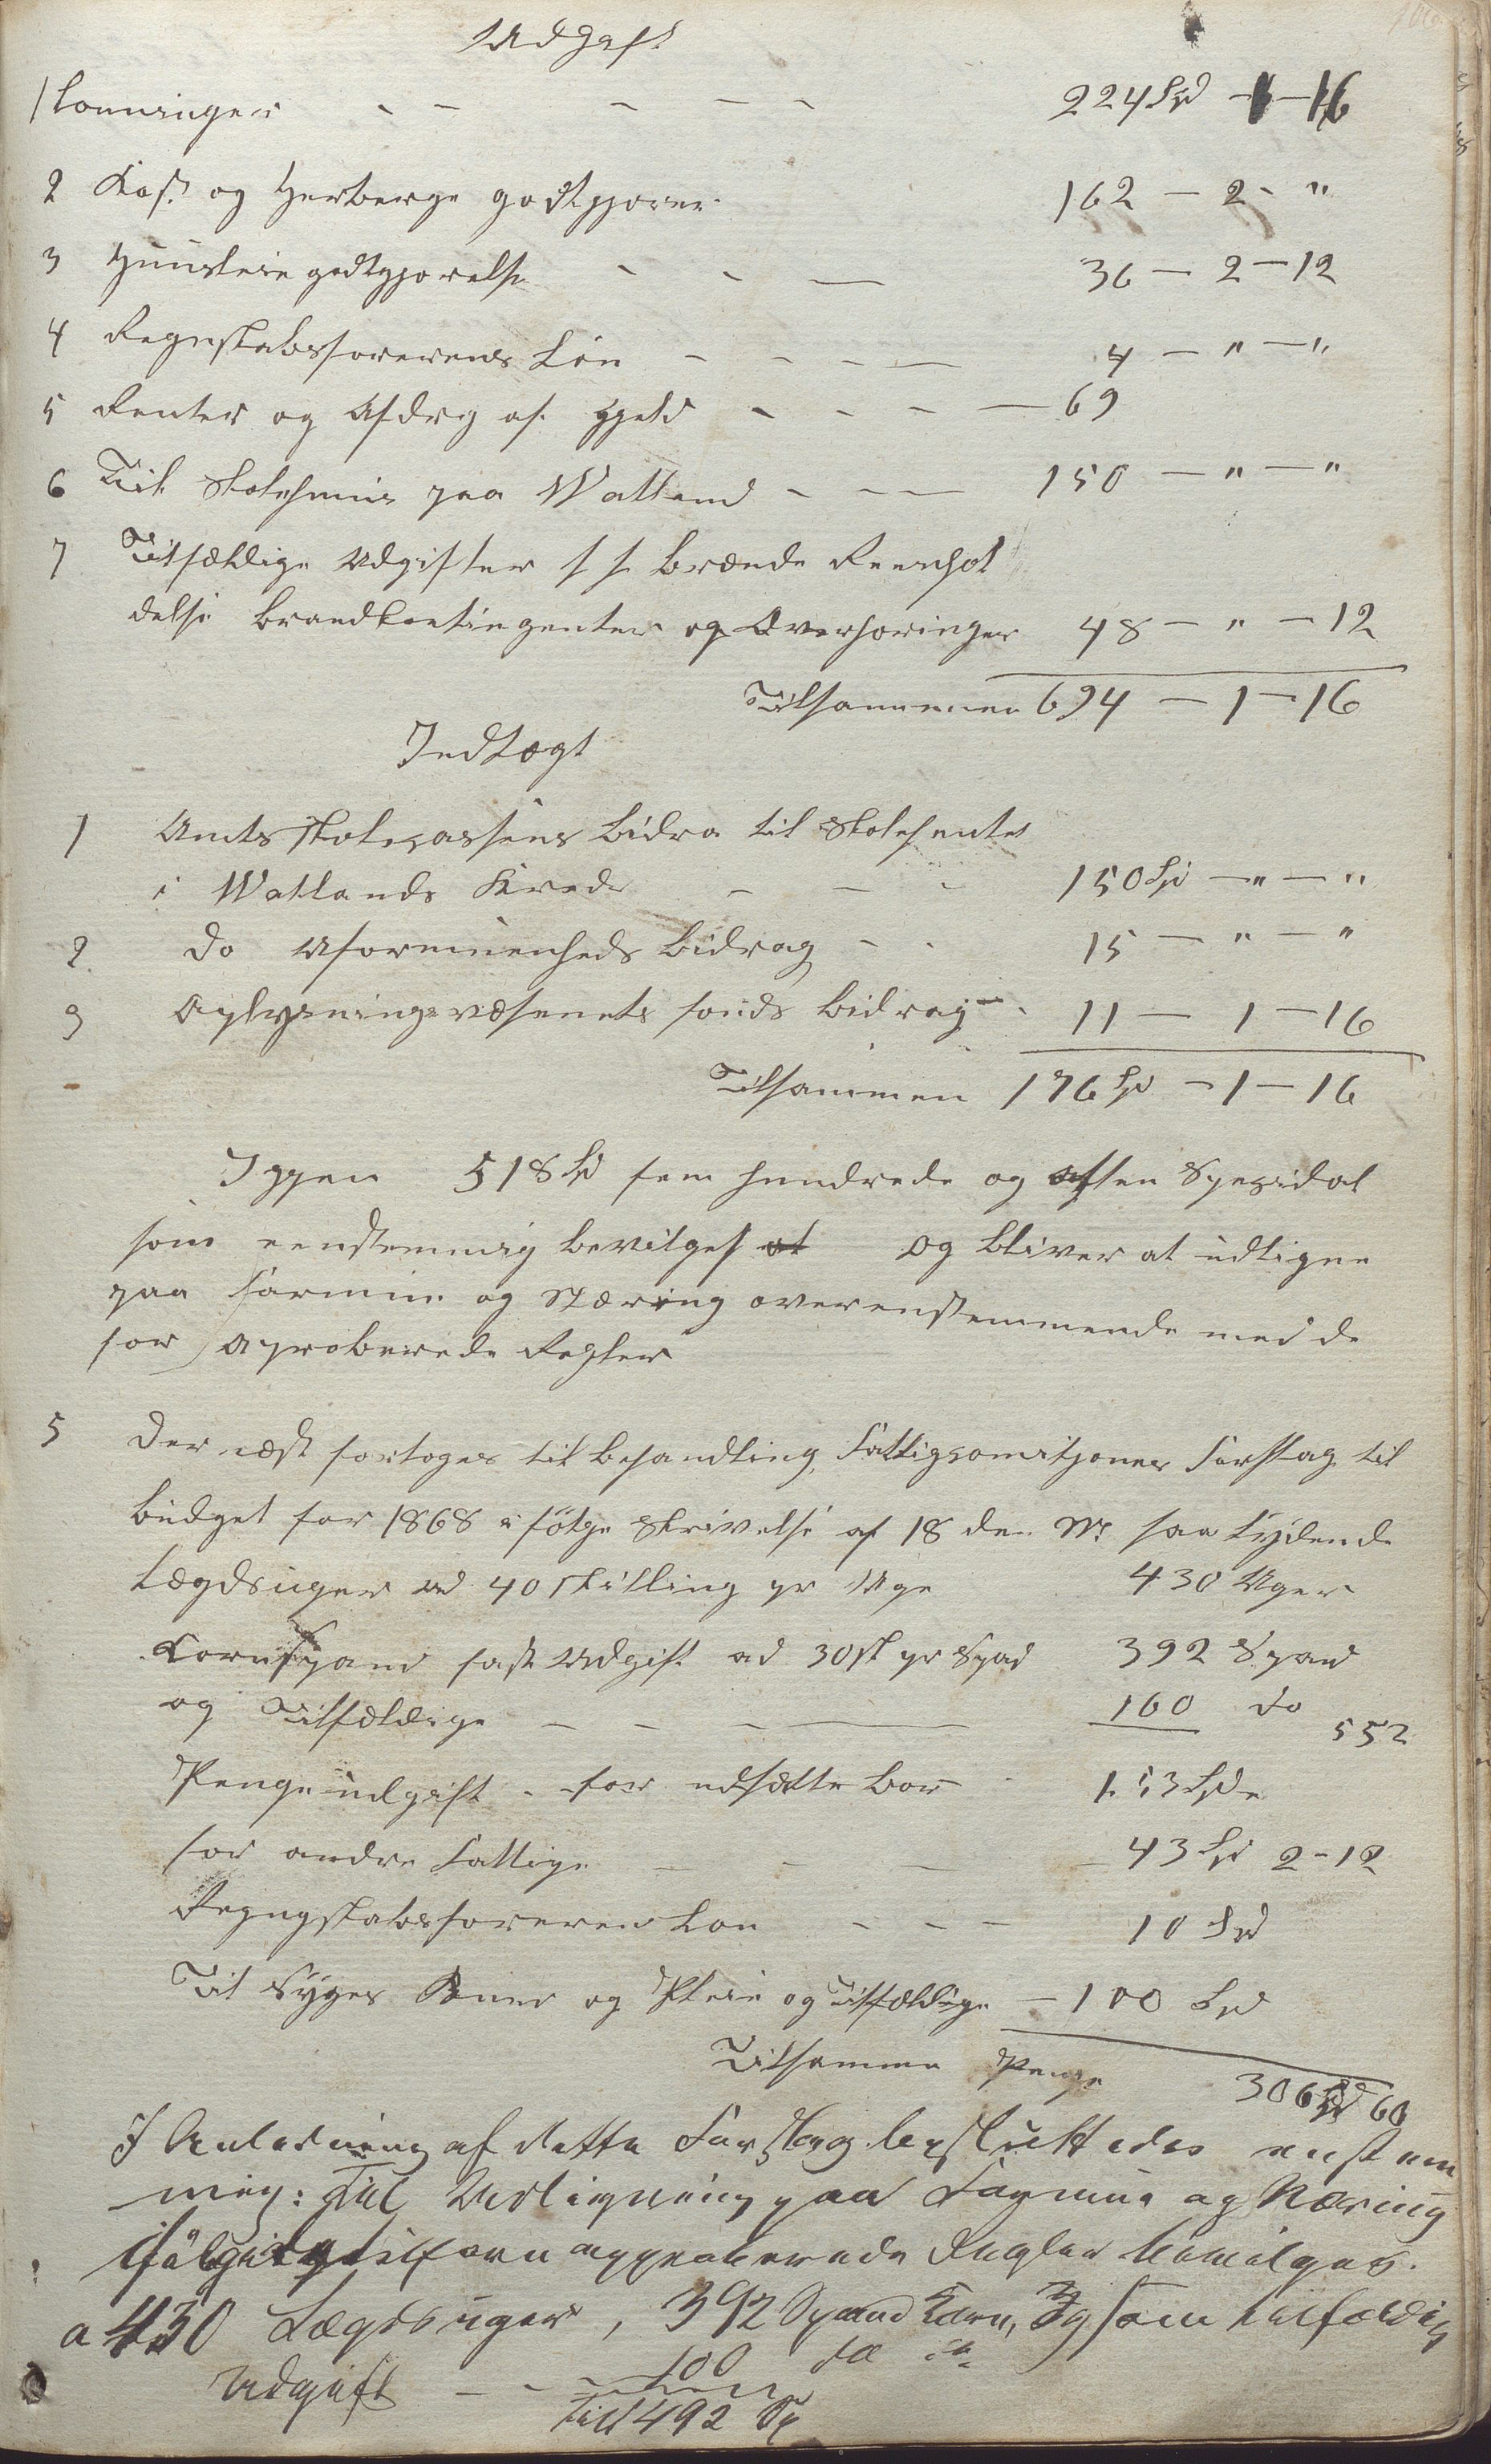 Udgift
1 Lønninger - - - - - 224 Spd - 1 - 16
2 Kost og Herberge godtgjører 162 - 2 - "
3 Huusleie godtgjørelse - - - 36 - 2 - 12
4 Regnskabsførerens Løn - - - - 4 - " - "
5 Renter og Afdrg af Gjeld - - - - 69
6 Til Skolehuus paa Watland - - - 150 - " - "
7 Tilfældige Udgifter s s Brænde Reenhol
delse Brandkontingenter og Overføringer 48 - " - 12
Tilsammen 694 - 1 - 16
Indtægt
1 Amtsskolecassens Bidra til Skolehuuset
i Watlands Kreds - - - 150 Spd - " - "
2 do Uformuenheds Bidrag - - 15 - " - "
3 Oplysningsvæsenets fonds Bidrag - 11 - 1 - 16
Tilsammen 176 Spd - 1 - 16
Igjen 518 Spd fem hundrede og atten Spesidal
som eenstemmig bevilges at og bliver at udligne
paa Formue og Næring overenstemmende med de
før aproberede Regler
5 Der næst fortoges til Behandling Fattigcomisjones Forslag til
Budget for 1868 i følge Skrivelse af 18 de M: saa lydende
Lægdsuger ad 40 Skilling pr Uge 430 Uger
Kornspand fast Udgift ad 30 sk pr Spad 392 Spand
og Tilfældige - - - 160 do 552
Pengeudgift - for udsatte Børn 153 Spd
for andre Fattige - - - 43 Spd 2-12
Regngskabsføreren Løn - - - 10 Spd
Til Syges Kuur og Pleie og Tilfældige - 100 Spd
Tilsammen Penge 306 Spd 60
I Anledning af dette Forslag besluttedes enstem
mig: Til Udligning paa Formue og Næring
ifølge tilforn approberede Regler bevilges.
a 430 Lægdsuger, 392 Spand Korn, Og som tilfældig
Udgift - - - 100 do
Till 492 Sp